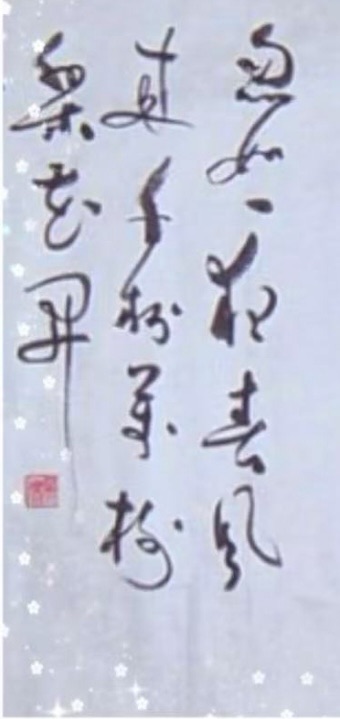 忽如一夜春風
來千樹萬樹
梨花開